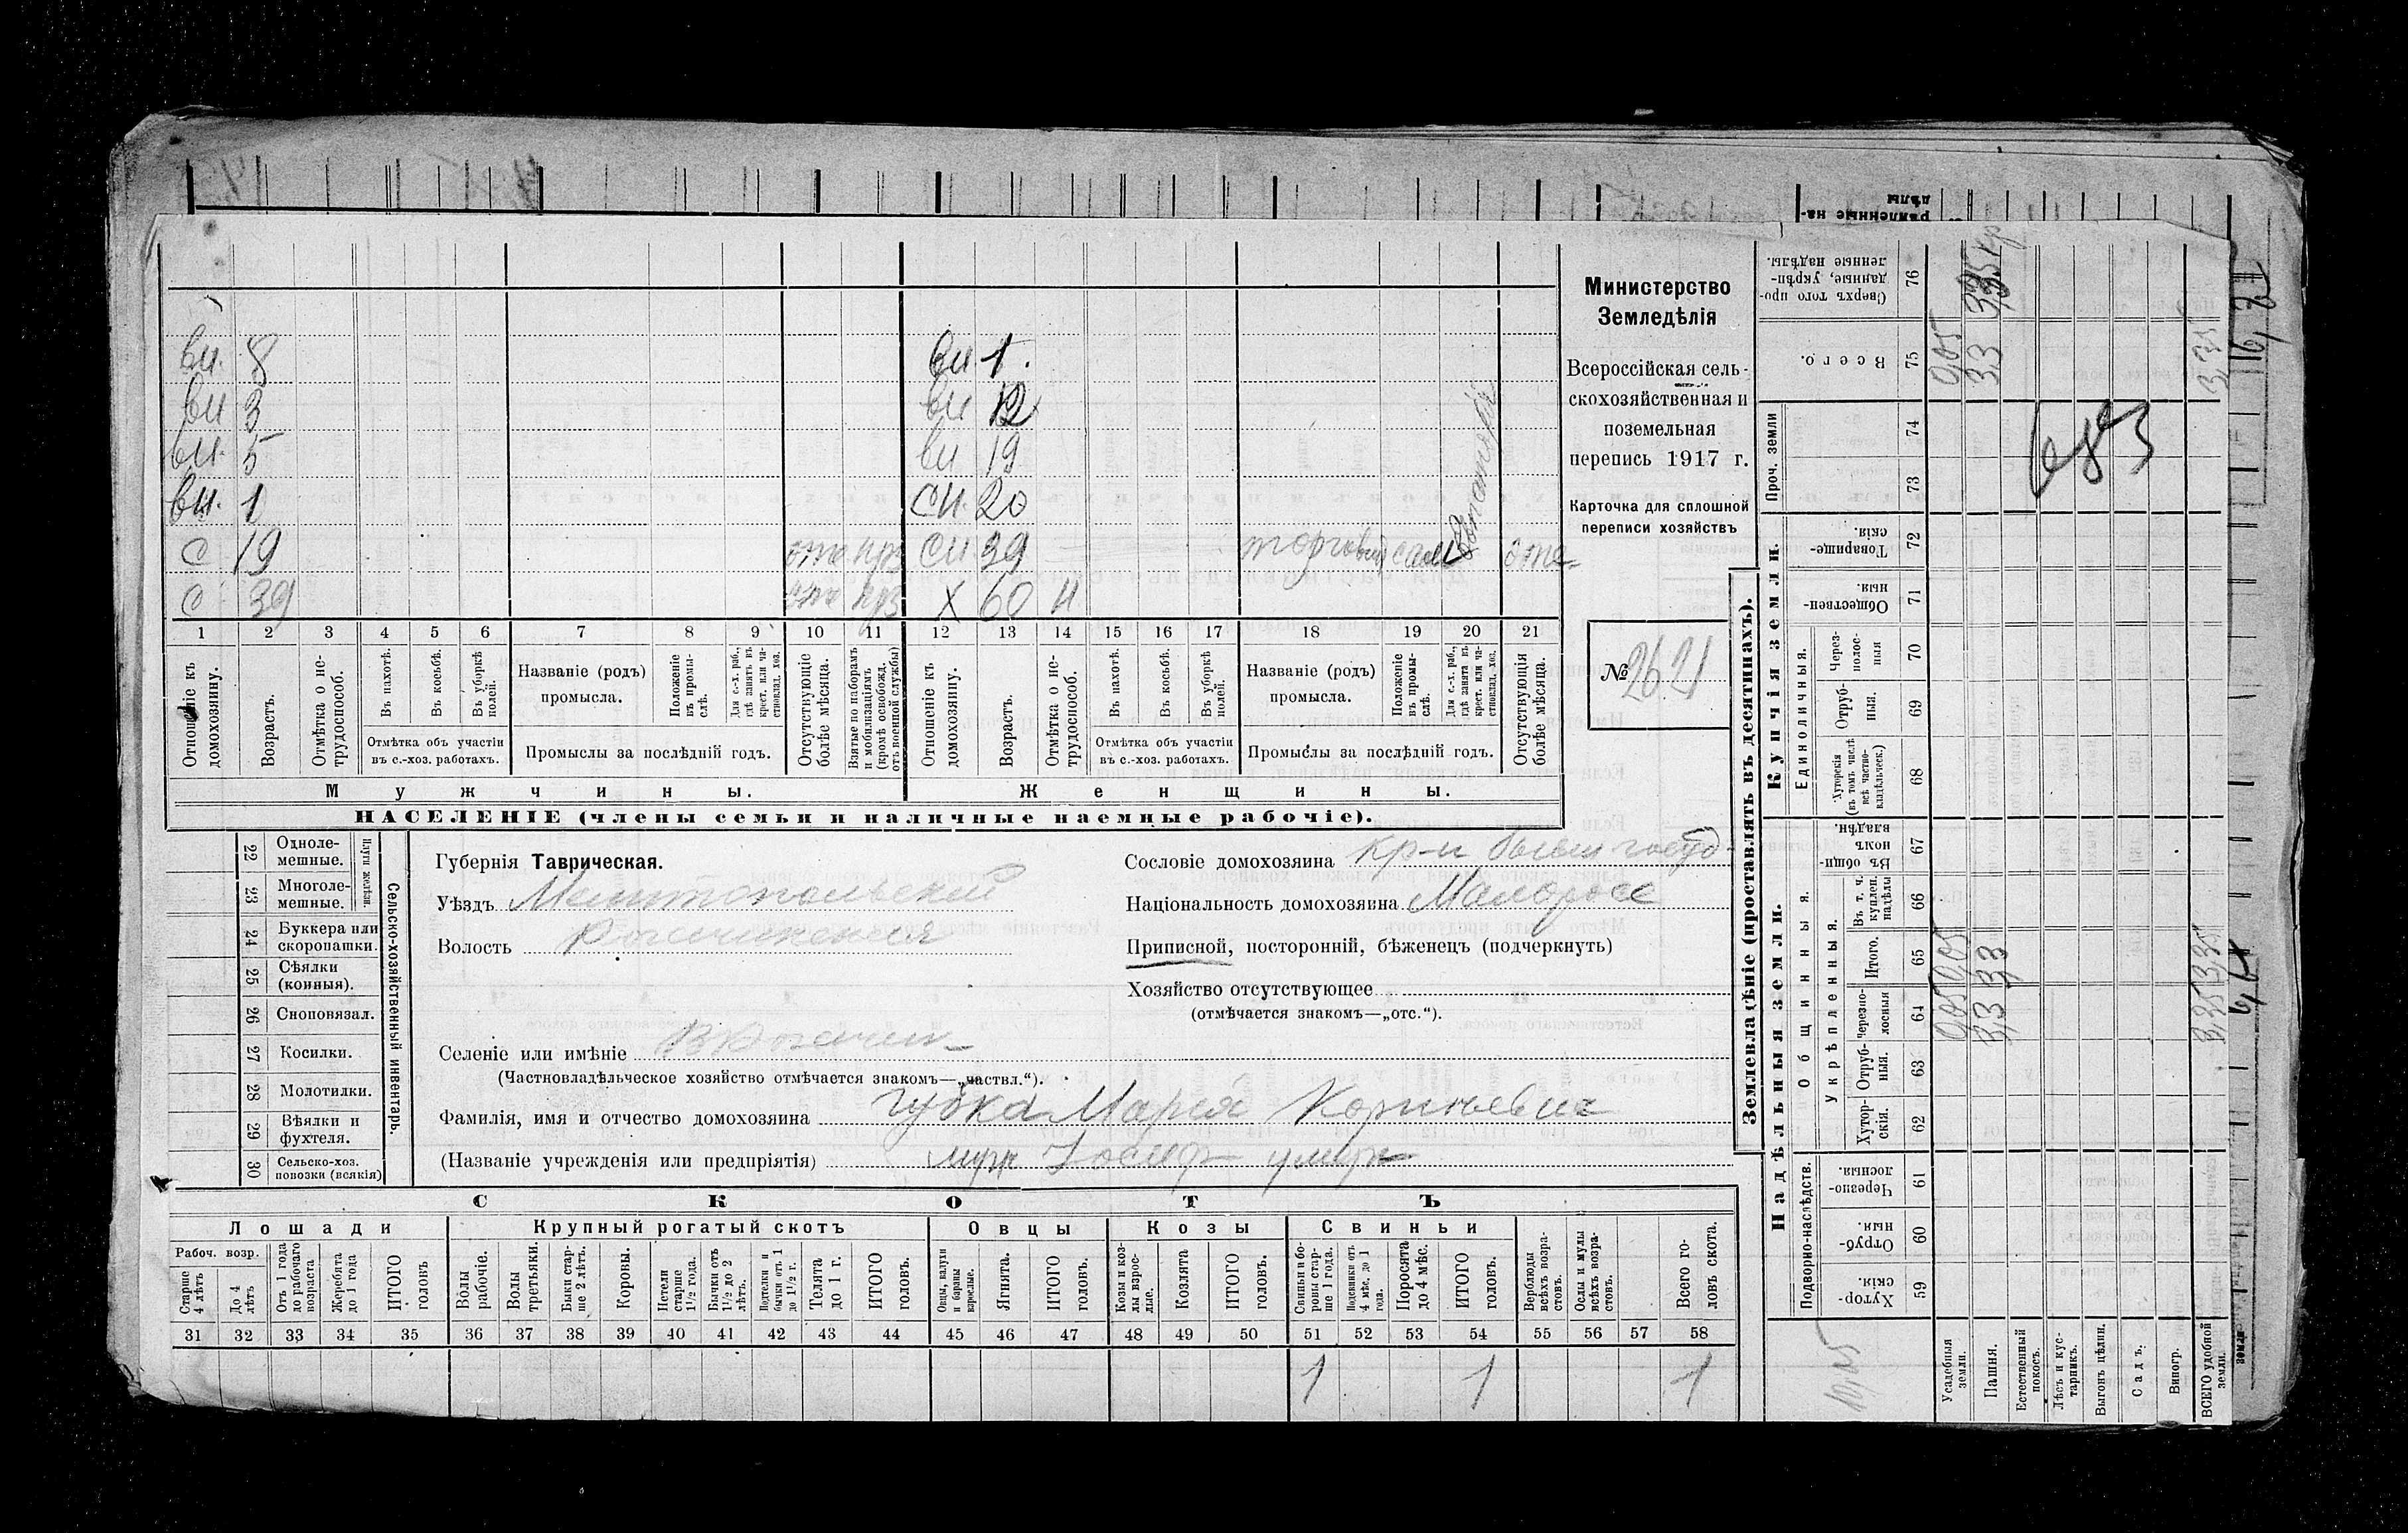 Министерство
Земледѣлія
Всероссійская сель-
скохозяйственная и
поземельная
перепись 1917 г.
Карточка для сплошной
переписи хозяйствъ
№ 2621
вн. 8
вн 3
вн. 5
вн. 1
с 19 отс
с 39 отс
вн 1.
вн 12
вн 19
сн. 20
сн 39 торговля отс
х 60 н
1 2 3 4 5 6 7 8 9 10 11 12 13 14 15 16 17 18 19 20 21
Отношеніе къ домохозяину.
Возрастъ.
Отмѣтка о не-трудоспособ.
Въ пахотѣ.
Въ косьбѣ.
Въ уборкѣ полей.
Отмѣтка объ участіи
въ с.-хоз. работахъ.
Названіе (родъ)
промысла.
Положеніе въ промы-слѣ.
Для с.-х. раб., гдѣ занятъ въ крест. или ча-стновлад. хоз.
Промыслы за послѣдній годъ.
Отсутствующіе болѣе мѣсяца.
Взятые по наборамъ и мобилизаціямъ (кромѣ освобожд. отъ военной службы)
Отношеніе къ домохозяину.
Возрастъ.
Отмѣтка о не-трудоспособ.
Въ пахотѣ.
Въ косьбѣ.
Въ уборкѣ полей.
Отмѣтка объ участіи
въ с.-хоз. работахъ.
Названіе (родъ)
промысла.
Положеніе въ промы-слѣ.
Для с.-х. раб., гдѣ занята въ крест. или ча-стновлад. хоз.
Промыслы за послѣдній годъ.
Отсутствующія болѣе мѣсяца.
Мужчины.
Женщины.
НАСЕЛЕНІЕ (члены семьи и наличные наемные рабочіе).
22 Одноле-мешные.
23 Многоле-мешные.
Плуги желѣзн.
24 Буккера или скоропашки.
25 Сѣялки (конныя).
26 Сноповязал.
27 Косилки.
28 Молотилки.
29 Вѣялки и фухтеля.
30 Сельско-хоз. повозки (всякія)
Сельско-хозяйственный инвентарь.
Губернія Таврическая.
Уѣздъ Мелитопольскій
Волость Рогачикская
Селеніе или имѣніе В Рогачик
(Частновладѣльческое хозяйство отмѣчается знакомъ—„частвл.“).
Фамилія, имя и отчество домохозяина Губка Мария Корнѣевна
(Названіе учрежденія или предпріятія) муж Іосиф умер
Сословіе домохозяина кр-н бывш госуд
Національность домохозяина Малоросс
Приписной, посторонній, бѣженецъ (подчеркнуть)
Хозяйство отсутствующее
(отмѣчается знакомъ—„отс.“).
СКОТЪ
Лошади
Крупный рогатый скотъ
Овцы
Козы
Свиньи
Рабоч. возр.
Старше 4 лѣтъ
До 4 лѣтъ
Отъ 1 года до рабочаго возраста
Жеребята до 1 года
ИТОГО головъ
Волы рабочіе.
Волы третьяки.
Быки стар-ше 2 лѣтъ.
Коровы.
Нетели старше 1½ года.
Бычки отъ 1½ до 2 лѣтъ.
Подтелки и бычки отъ 1 до 1½ г.
Телята до 1 г.
ИТОГО головъ.
Овцы, валухи и бараны взрослые.
Ягнята.
ИТОГО головъ.
Козы и коз-лы взрос-лые.
Козлята
ИТОГО головъ.
Свиньи и бо-ровы стар-ше 1 года.
Подсвинки отъ 4 мѣс. до 1 года.
Поросята до 4 мѣс.
ИТОГО головъ.
Верблюды всѣхъ возра-стовъ.
Ослы и мулы всѣхъ возра-стовъ.
Всего го-ловъ скота.
31 32 33 34 35 36 37 38 39 40 41 42 43 44 45 46 47 48 49 50 51 52 53 54 55 56 57 58
1 1 1
Землевладѣніе (проставлять въ десятинахъ).
Купчія земли.
Надѣльныя земли.
Сверхъ того про-данные, укрѣп-ленные надѣлы. 76
Всего. 75
Проч. земли
74
73
Товарище-скія. 72
Обществен-ныя 71
Единоличныя.
Через-полос-ныя 70
Отруб-ныя. 69
Хуторскія (въ томъ числѣ всѣ частно-владѣльческ.) 68
Въ общин-номъ владѣн. 67
Общинныя.
Укрѣпленныя.
Въ т. ч. куплен. надѣлы 66
Итого. 65
Черезпо-лосныя 64
Отруб-ныя. 63
Хутор-скія. 62
Подворно-наслѣдств.
Черезпо-лосныя. 61
Отруб-ныя. 60
Хутор-скія. 59
Усадебныя земли.
Пашня.
Естественный покосъ.
Лѣсъ и кус-тарникъ.
Выгонъ цѣлин.
Садъ.
Виногр.
ВСЕГО удобной земли.
0,05 0,05 0,05
3,3 3,3 3,3
3,35 3,35 3,35
683